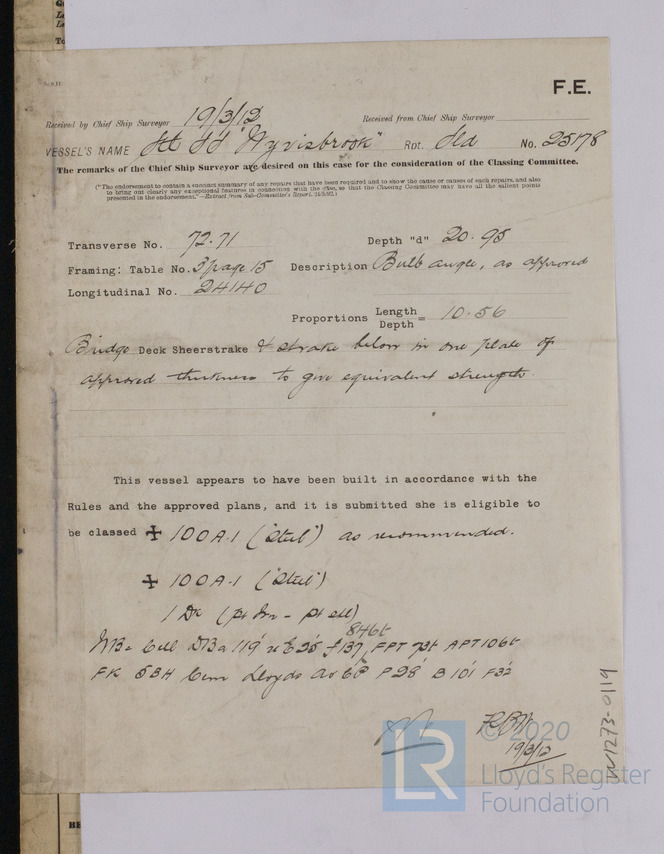 F.E.
Received by Chief Ship Surveyor 19/3/12 Received from Chief Ship Surveyor
VESSEL'S NAME "Wyvisbrook" Rpt. No. 25178
The remarks of the Chief Ship Surveyor are desired on this case for the consideration of the Classing Committee.
("The endorsement to contain a succinct summary of any repairs that have been required and to show the cause or causes of such repairs, and also
to bring out clearly any exceptional features in connection with the case, so that the Classing Committee may have all the salient points
presented in the endorsement."—Extract from Sub-Committee's Report,
Transverse No. 72.71 Depth "d" 20.95
Framing: Table No. 3 page 15 Description Bulb angle, as approved
Longitudinal No. 24140
Proportions Length/Depth = 10.56
Bridge Deck Sheerstrake & strake below in one plate of
approved thickness to give equivalent strength.
This vessel appears to have been built in accordance with the
Rules and the approved plans, and it is submitted she is eligible to
be classed ✠ 100A.1 ("Steel") as recommended.
✠ 100A.1 ("Steel")
1 Dk
846t
Cell DBa 119' 137' FPT 73t APT 106t
FK 5BH Cem Lloyds P28' B101' F32'
19/3/12
W1273-0119
© 2020
LR
Lloyd's Register
Foundation